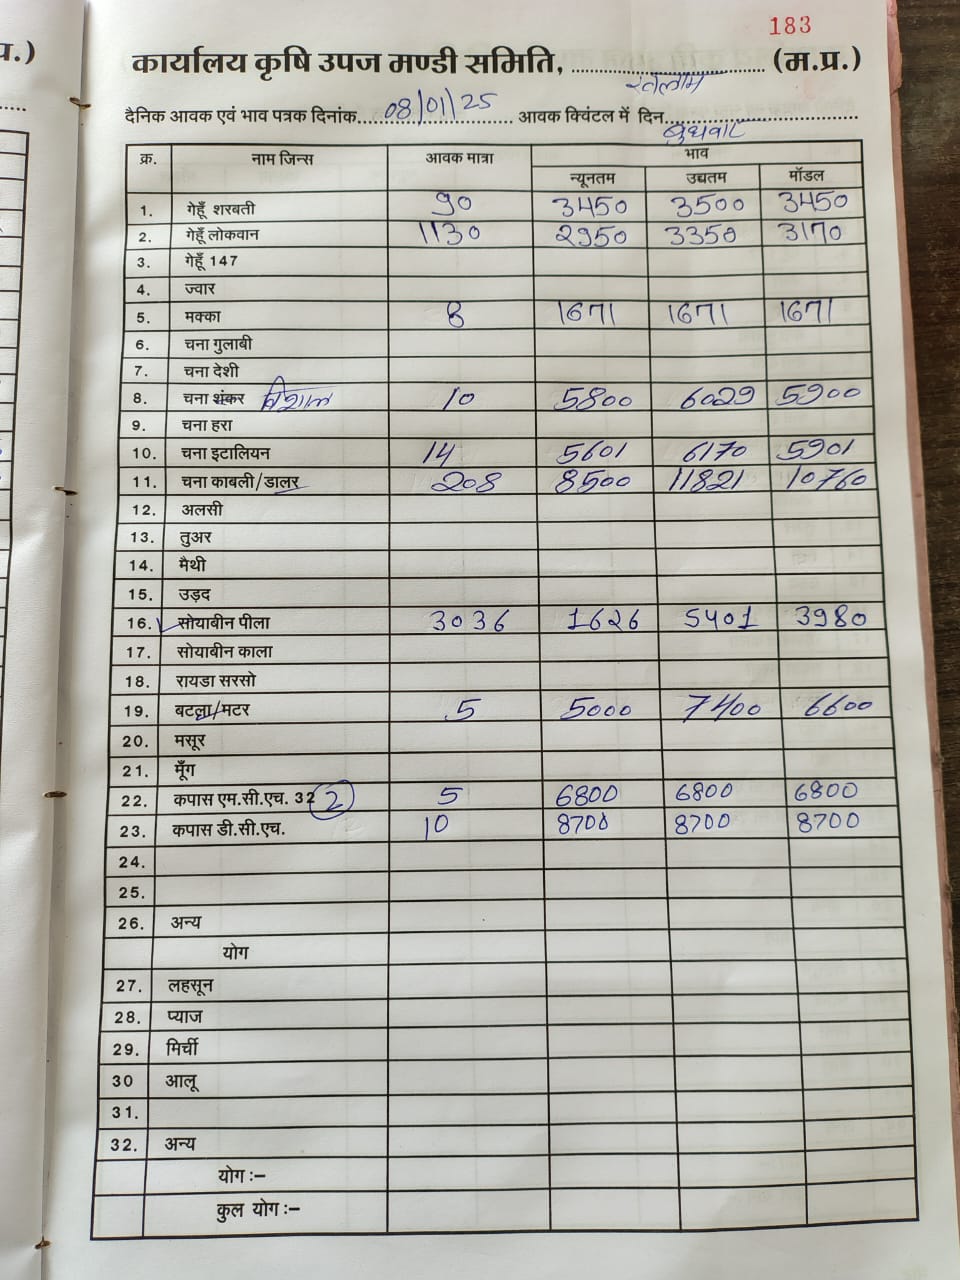 प्र.)
183
कार्यालय कृषि उपज मण्डी समिति, रतलाम (म.प्र.)
दैनिक आवक एवं भाव पत्रक दिनांक 08/01/25 आवक क्विंटल में दिन बुधवार
क्र. नाम जिन्स आवक मात्रा भाव
न्यूनतम उद्यतम मॉडल
1. गेहूँ शरबती 90 3450 3500 3450
2. गेहूँ लोकवान 1130 2950 3350 3170
3. गेहूँ 147
4. ज्वार
5. मक्का 8 1671 1671 1671
6. चना गुलाबी
7. चना देशी
8. चना शंकर विशाल 10 5800 6029 5900
9. चना हरा
10. चना इटालियन 14 5601 6170 5901
11. चना काबली/डालर 208 8500 11821 10760
12. अलसी
13. तुअर
14. मैथी
15. उड़द
16. सोयाबीन पीला 3036 1626 5401 3980
17. सोयाबीन काला
18. रायडा सरसो
19. बटला/मटर 5 5000 7400 6600
20. मसूर
21. मूँग
22. कपास एम.सी.एच. 32 2 5 6800 6800 6800
23. कपास डी.सी.एच. 10 8700 8700 8700
24.
25.
26. अन्य
योग
27. लहसून
28. प्याज
29. मिर्ची
30 आलू
31.
32. अन्य
योग :-
कुल योग :-